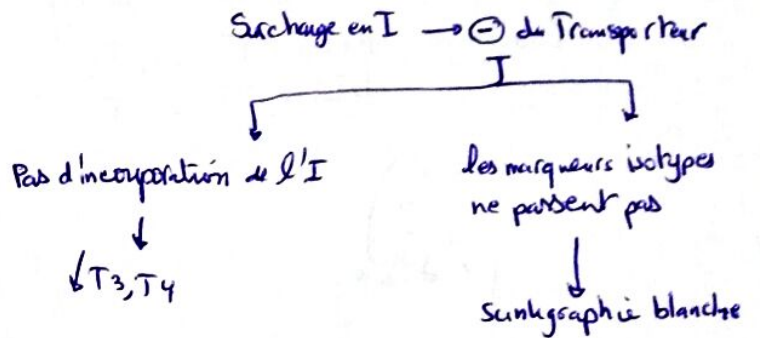 Surcharge en I → ⊖ du Transporteur
Pas d'incorporation de l'I
↓T3, T4
les marqueurs isotypes
ne passent pas
scintigraphie blanche